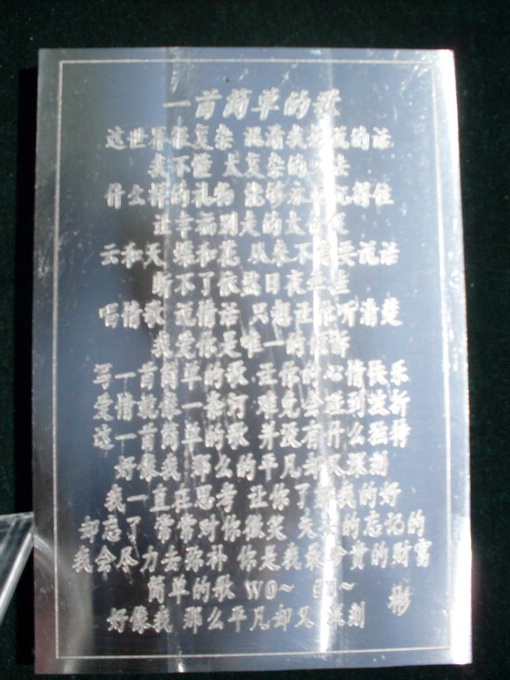 一首简单的歌
这世界很复杂 混淆我想说的话
我不懂 太复杂的
什么样的礼物 能够永 记得住
让幸福别走的太
云和天 蝶和花 从来不 要说话
断不了依然日夜牵挂
唱情歌 说情话 只想让你听清楚
我爱你是唯一的
写一首简单的歌 让你的心情快乐
爱情就像一条河 难免会碰到波折
这一首简单的歌 并没有什么独特
好像我 那么的平凡却又深刻
我一直在思考 让你了 我的好
却忘了 常常对你微笑 失 的忘记的
我会尽力去弥补 你是我最珍贵的财富
简单的歌 WO~
好像我 那么平凡却又 深刻
彬